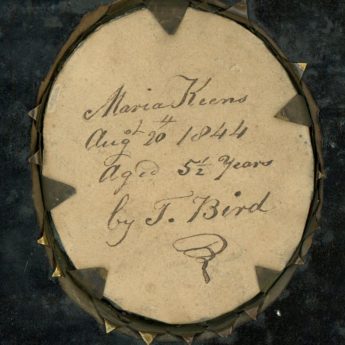 Maria Keens
Augst 20th 1844
Aged 5½ Years
by T. Bird